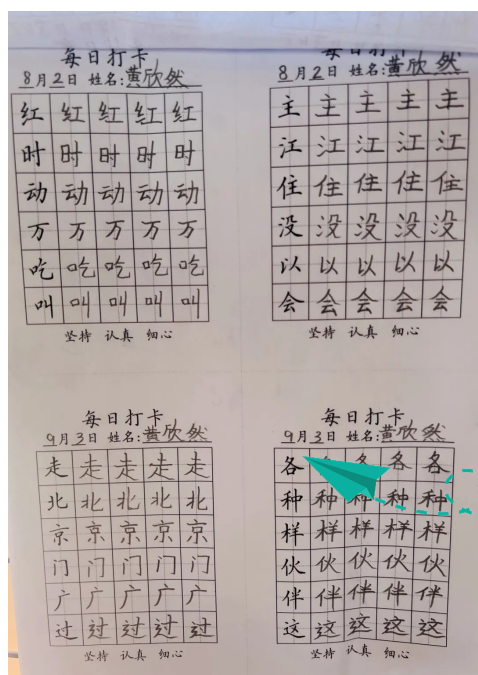 每日打卡
8月2日 姓名:黄欣然
红 红 红 红 红
时 时 时 时 时
动 动 动 动 动
万 万 万 万 万
吃 吃 吃 吃 吃
叫 叫 叫 叫 叫
坚持 认真 细心
每日打卡
8月2日 姓名:黄欣然
主 主 主 主 主
江 江 江 江 江
住 住 住 住 住
没 没 没 没 没
以 以 以 以 以
会 会 会 会 会
坚持 认真 细心
每日打卡
9月3日 姓名:黄欣然
走 走 走 走 走
北 北 北 北 北
京 京 京 京 京
门 门 门 门 门
广 广 广 广 广
过 过 过 过 过
坚持 认真 细心
每日打卡
9月3日 姓名:黄欣然
各 各 各 各
种 种 种 种 种
样 样 样 样 样
伙 伙 伙 伙 伙
伴 伴 伴 伴 伴
这 这 这 这 这
坚持 认真 细心